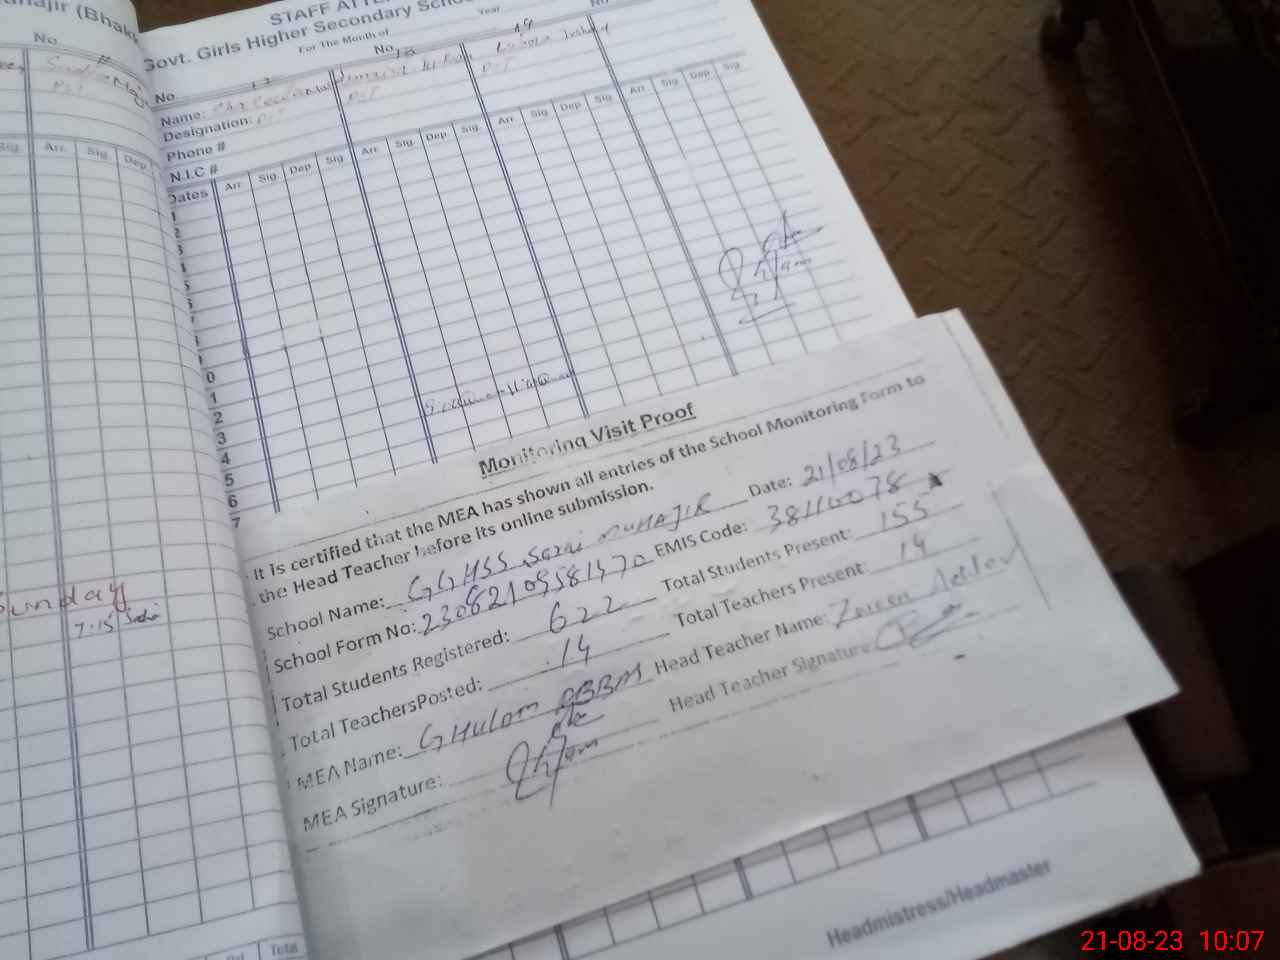 anajir (Bhakk
No.
Sig. Arr. Sig. Dep
Sunday
7:15
Total
STAFF ATTE
Govt. Girls Higher Secondary Scho
For The Month of Year
No. No. 14 No
Name:
Designation: PST PST PST
Phone #
N.I.C #
Dates Arr. Sig. Dep Sig. Arr. Sig. Dep. Sig. Arr. Sig. Dep. Sig. Arr. Sig. Dep. Sig.
1
2
3
4
5
6
0
1
2
3
4
5
6
7
Monitoring Visit Proof
It is certified that the MEA has shown all entries of the School Monitoring Form to
the Head Teacher before its online submission.
School Name: GGHSS Sarai MUHAJIR Date: 21/08/23
School Form No: 23082109581470 EMIS Code: 38110078
Total Students Registered: 622 Total Students Present: 155
Total TeachersPosted: 14 Total Teachers Present: 14
MEA Name: GHULAM ABBAS Head Teacher Name: Zareen Akhter
MEA Signature: Head Teacher Signature:
Headmistress/Headmaster
21-08-23 10:07